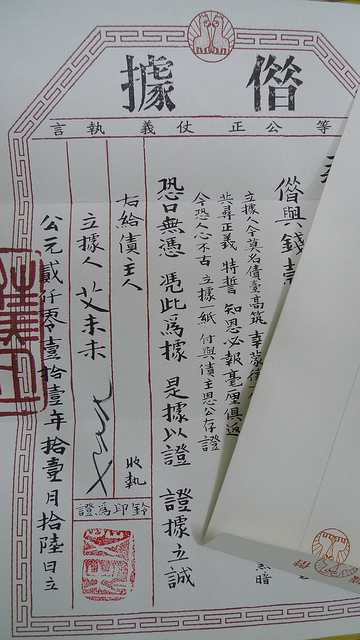 借據
等公正仗義執言
借與錢壹
黑暗
立據人今莫名債壹高筑 幸蒙
共尋正義 特誓 知恩必報 毫厘俱返
今恐人心不古 立據紙 付與債主恩公存證
恐口無憑 憑此為據 是據以證 證據立誠
右給債主人 收執
立據人 艾未未
鈐印為證
公元貳仟零壹拾壹年拾壹月拾陸日立